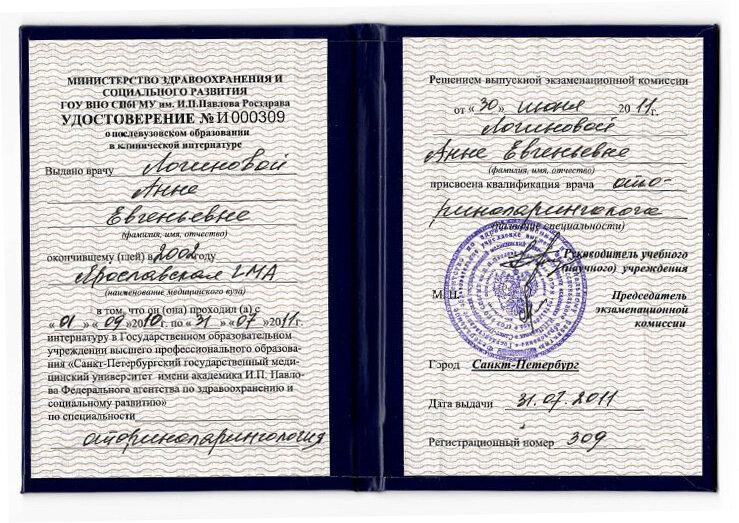 МИНИСТЕРСТВО ЗДРАВООХРАНЕНИЯ И
СОЦИАЛЬНОГО РАЗВИТИЯ
ГОУ ВПО СПбГМУ им. И.П.Павлова Росздрава
УДОСТОВЕРЕНИЕ № И 000309
о послевузовском образовании
в клинической интернатуре
Выдано врачу Логиновой
Анне
Евгеньевне
(фамилия, имя, отчество)
окончившему (шей) в 2002 году
Ярославская ГМА
(наименование медицинского вуза)
в том, что он (она) проходил (а) с
« 01 » « 09 » 2010г. по « 31 » « 07 » 2011г.
интернатуру в Государственном образовательном
учреждении высшего профессионального образова-
ния «Санкт-Петербургский государственный меди-
цинский университет имени академика И.П. Павло-
ва Федерального агентства по здравоохранению и
социальному развитию»
по специальности
оториноларингология
Решением выпускной экзаменационной комиссии
от «30» июня 2011г.
Логиновой
Анне Евгеньевне
(фамилия, имя, отчество)
присвоена квалификация врача ото-
риноларинголога
(название специальности)
Руководитель учебного
(научного) учреждения
М.П.
Председатель
экзаменационной
комиссии
Город Санкт-Петербург
Дата выдачи 31.07.2011
Регистрационный номер 309